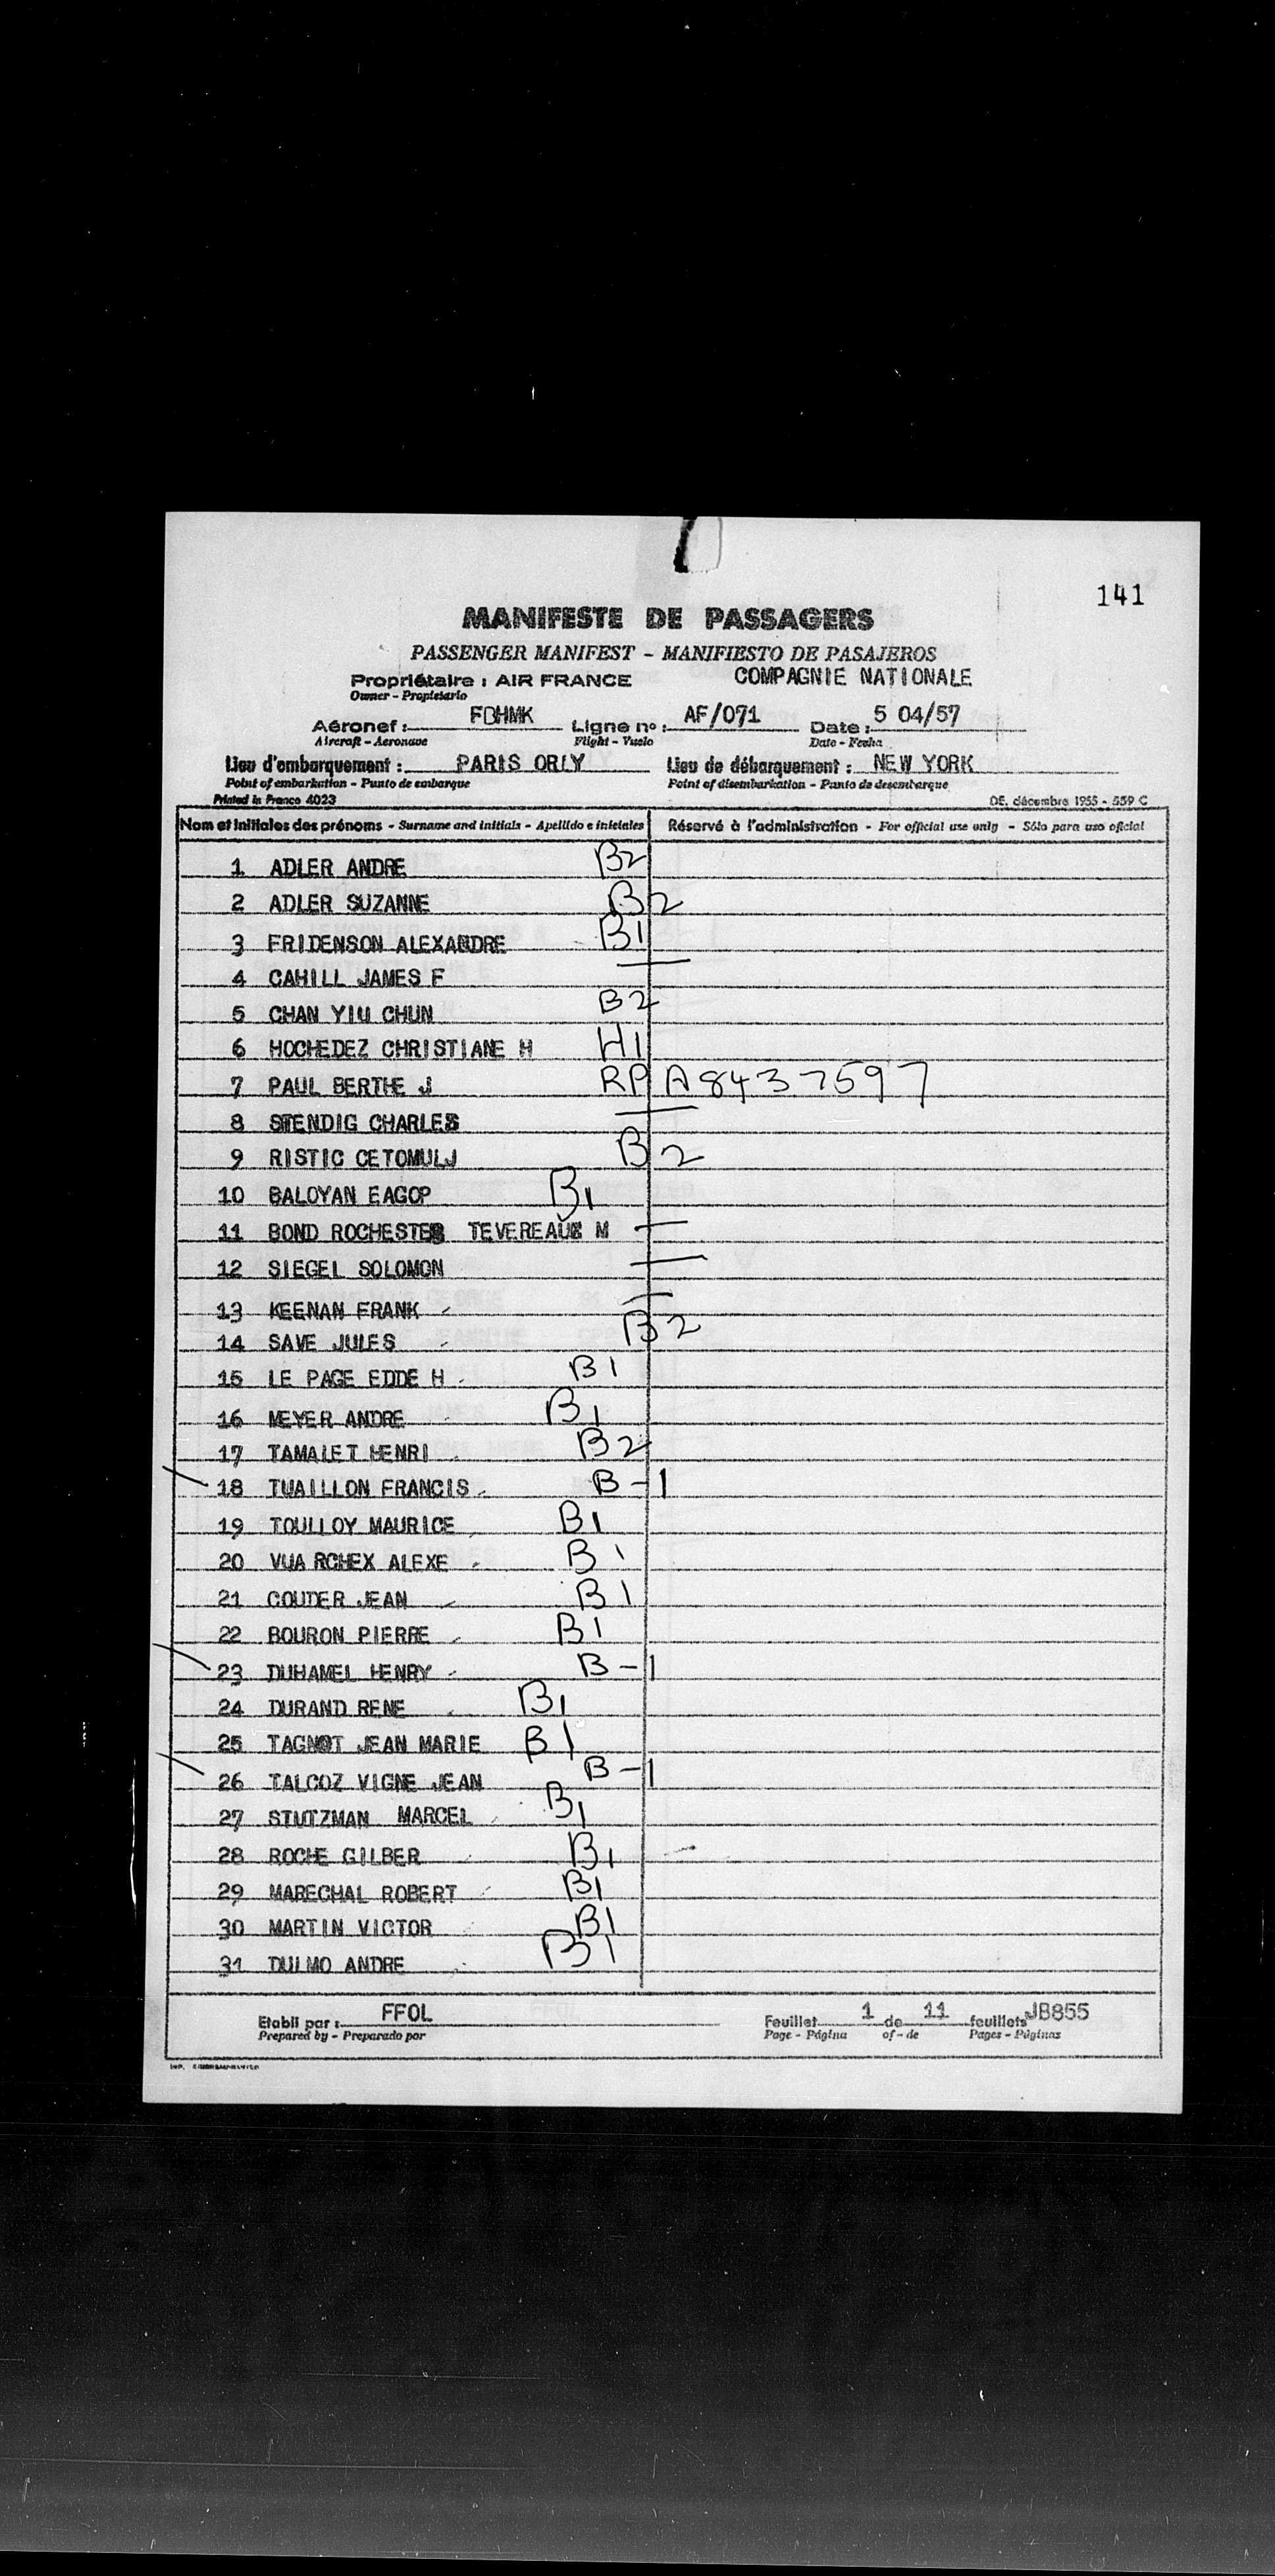 141
MANIFESTE DE PASSAGERS
PASSENGER MANIFEST - MANIFIESTO DE PASAJEROS
Propriétaire : AIR FRANCE COMPAGNIE NATIONALE
Owner - Propietario
Aéronef : FBHMK Ligne no : AF/071 Date : 5 04/57
Aircraft - Aeronave Flight - Vuelo Date - Fecha
Lieu d'embarquement : PARIS ORLY Lieu de débarquement : NEW YORK
Point of embarkation - Punto de embarque Point of disembarkation - Punto de desembarque
Printed in France 4023 DE. décembre 1955 - 559 C
Nom et initiales des prénoms - Surname and initials - Apellido e iniciales Réservé à l'administration - For official use only - Sólo para uso oficial
1 ADLER ANDRE B2
2 ADLER SUZANNE B2
3 FRIDENSON ALEXANDRE B1
4 CAHILL JAMES F —
5 CHAN YIU CHUN B2
6 HOCHEDEZ CHRISTIANE H H1
7 PAUL BERTHE J RP A8437597
8 STENDIG CHARLES —
9 RISTIC CETOMULJ B2
10 BALOYAN EAGOP B1
11 BOND ROCHESTER TEVEREAUX M —
12 SIEGEL SOLOMON —
13 KEENAN FRANK —
14 SAVE JULES B2
15 LE PAGE EDDE H B1
16 MEYER ANDRE B1
17 TAMALET HENRI B2
18 TUAILLON FRANCIS B-1
19 TOULLOY MAURICE B1
20 VUA RCHEX ALEXE B1
21 COUDER JEAN B1
22 BOURON PIERRE B1
23 DUHAMEL HENRY B-1
24 DURAND RENE B1
25 TAGNOT JEAN MARIE B1
26 TALCOZ VIGNE JEAN B-1
27 STUTZMAN MARCEL B1
28 ROCHE GILBER B1
29 MARECHAL ROBERT B1
30 MARTIN VICTOR B1
31 DULMO ANDRE B1
Etabli par : FFOL Feuillet 1 de 11 feuillets JB855
Prepared by - Preparado por Page - Página of - de Pages - Páginas